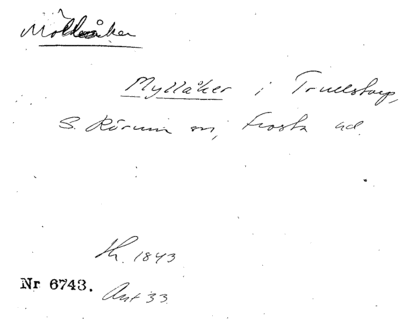 Mölleåker
Myllåker i Truelstorp,
S. Rörum sn, Frosta hd.
Kr. 1843
Nr 6743.
Ant 33.